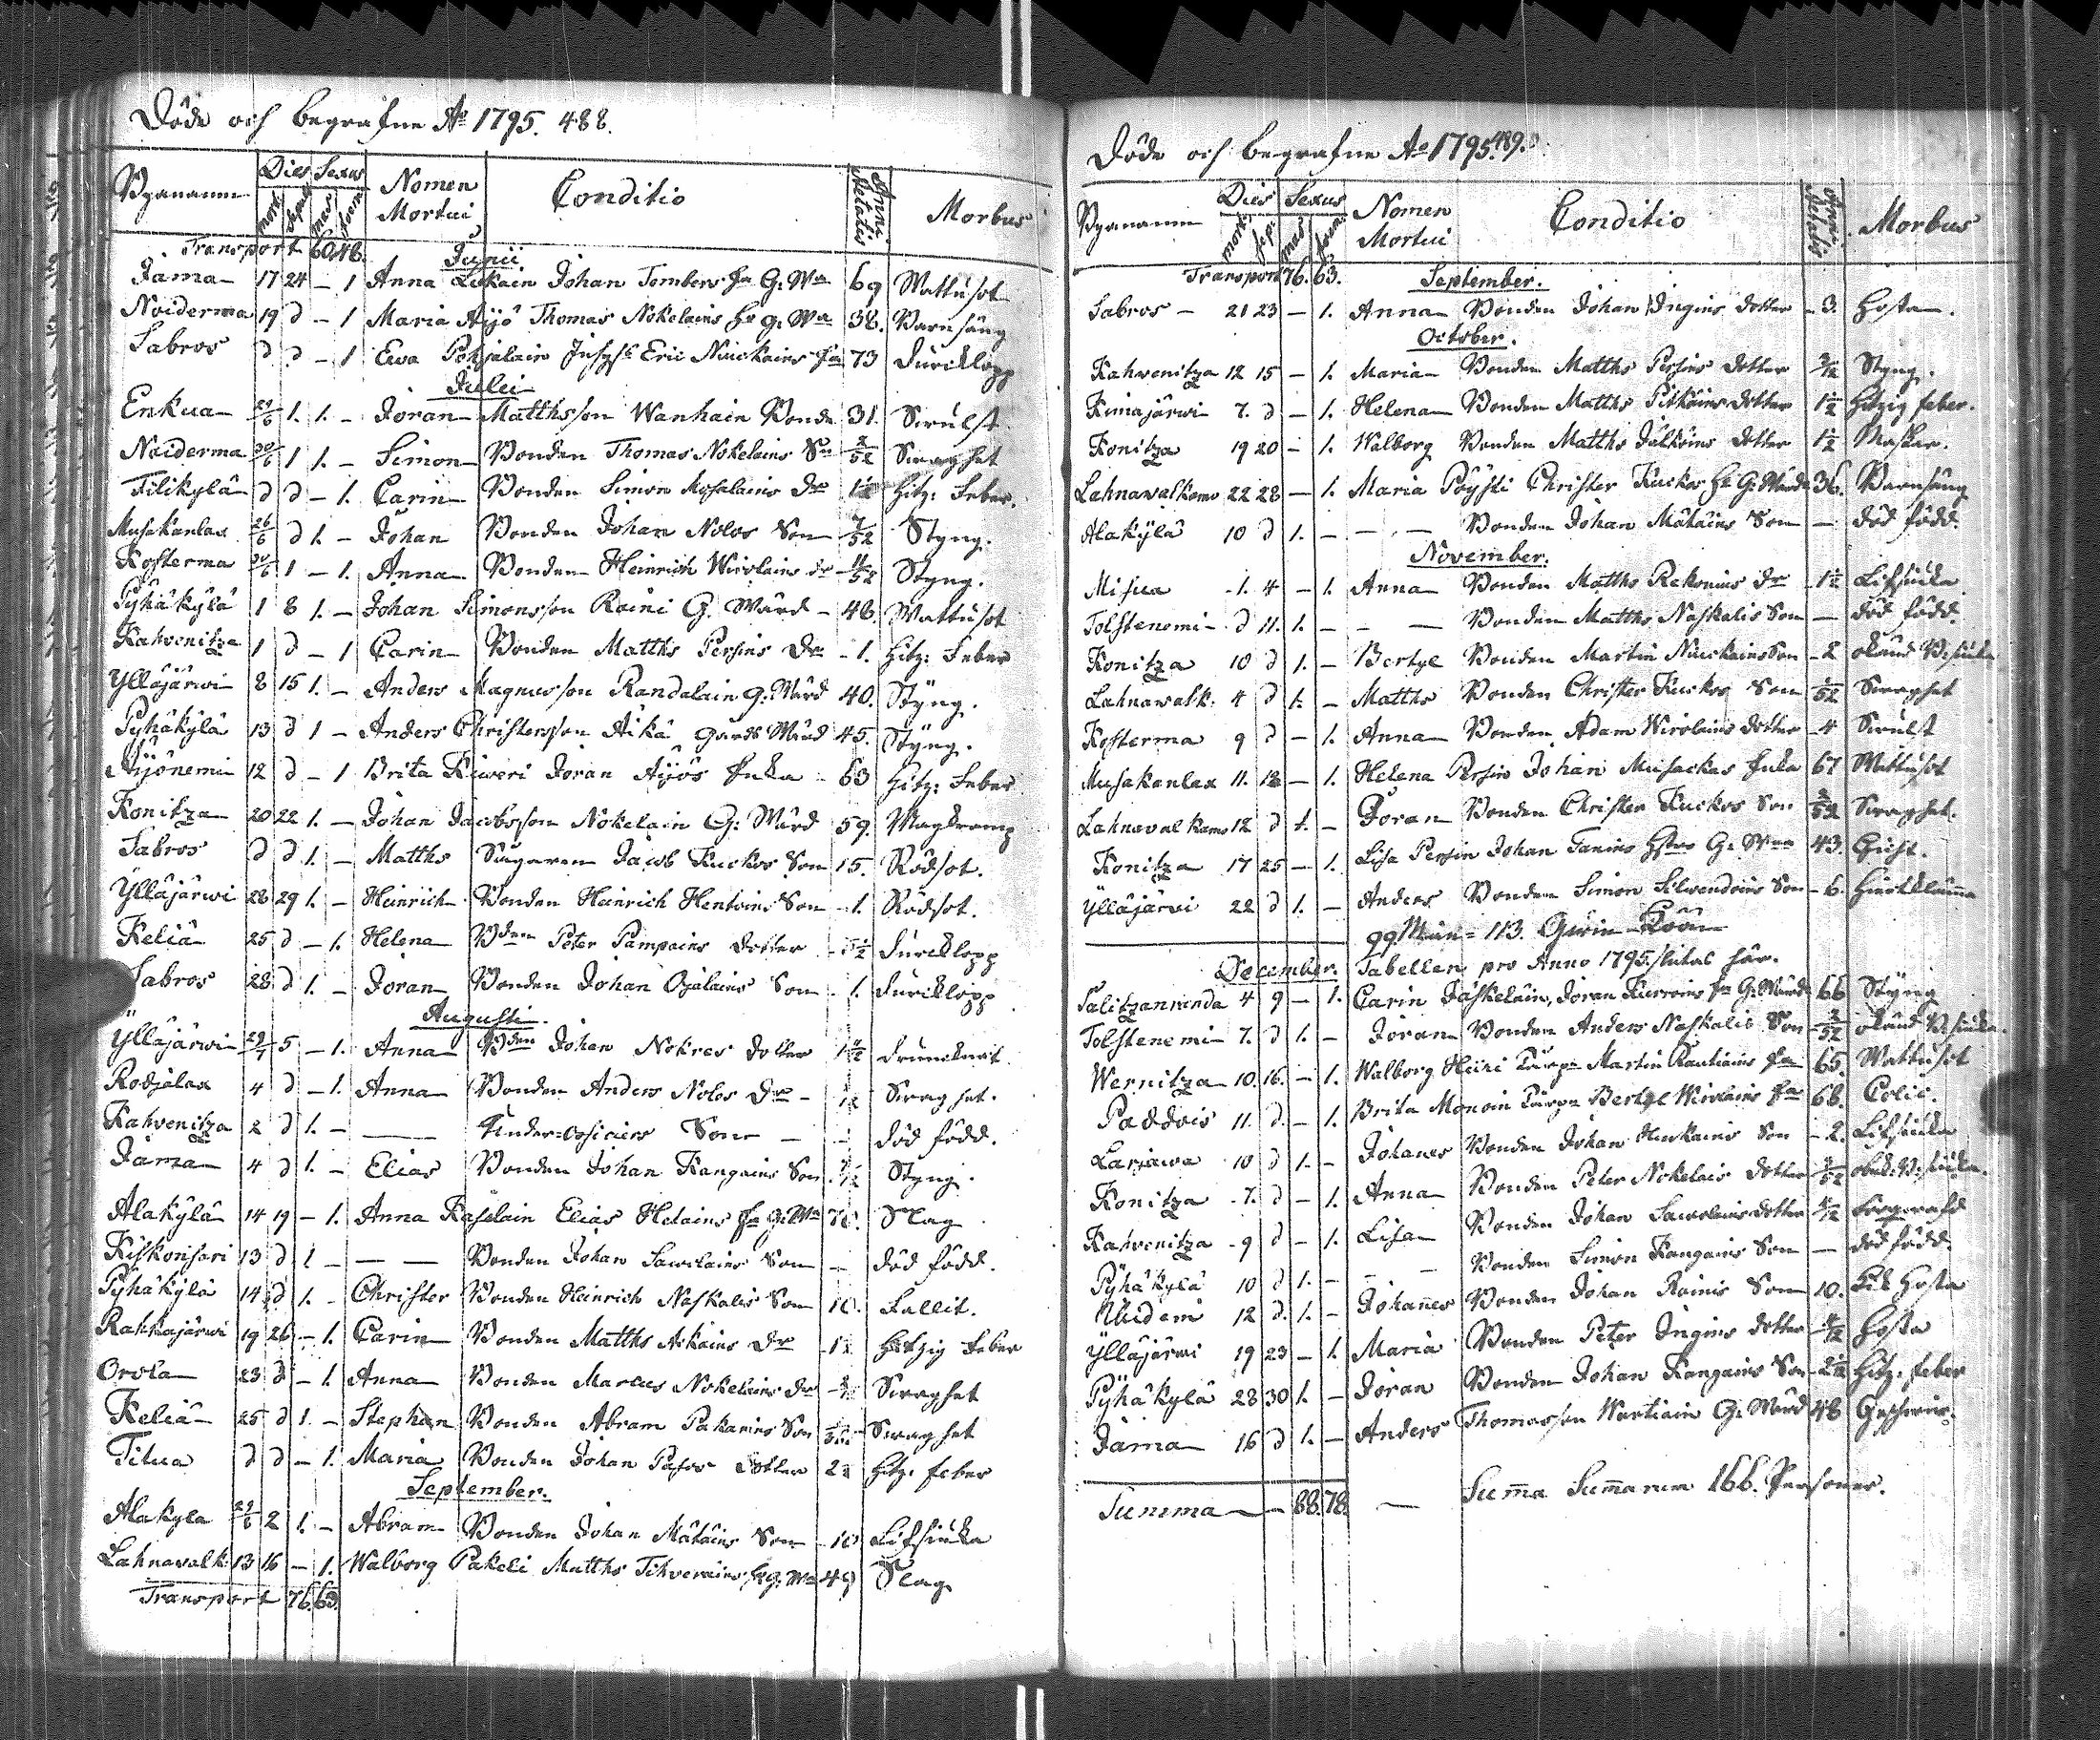 Döde och begrafne Ao 1795. 488.
Bynamn Dies Sexus Nomen Mortui Conditio Anni Aetatis Morbus
mort. sepult. mas. foem.
Transport 60. 48.
Junii
Jama 17 24 – 1 Anna Johan hu G. Wa 69 Wattusot
Noiderma 19 d – 1 Maria Äijö Thomas Nokelains hu G. Wa 38. Barnsäng
Sabros d d – 1 Ewa Pohjalain Eric Nuckains 73 durcklopp
Julii
Enkua 29/6 1. 1. – Jöran Matthsson Wanhain Bonde 31. Swulst
Noiderma 30/6 1 1. – Simon Bonden Thomas Nokelains Sn 2/52 Swaghet
Tilikylä d d – 1. Carin Bonden Simon dr 1 1/2 Hitz: Feber.
Musakanlax 26/6 d 1. – Johan Bonden Johan Nolos Son 7/52 Styng.
Kosterma 30/6 1 – 1. Anna Bonden Heinrich Wirolains dr 11/52 Styng.
Pyhäkylä 1 8 1. – Johan Simonsson Raini G. Wärd – 48. Wattusot
Kahvenitza 1 d – 1 Carin Bonden Matths Persins Dr – 1. Hitz: Feber
Ylläjärwi 8 15 1. – Anders Magnusson Randalain G: Wärd 40. Styng.
Pyhäkylä 13 d 1 – Anders Christersson Äikä Gårds Wärd 45. Styng.
Äijönemi 12 d – 1 Brita Kiweri Jöran Äijös Enka – 63 Hitz: Feber
Konitza 20 22 1. – Johan Jacobsson Nokelain G: Wärd 59. Magkramp
Sabros d d 1. – Matths Jacob Kuckos Son 15. Rödsot.
Ylläjärwi 28 29 1. – Heinrich Bonden Heinrich Hentoins Son – 1. Rödsot.
Keliä 25 d – 1. Helena Bden Peter Pampains dotter durcklopp
Sabros 28 d 1. – Jöran Bonden Johan Ojalains Son – 1. durcklopp
Augusti.
Ylläjärwi 29/7 5 – 1. Anna Bden Johan Nokres dotter druncknat
Rodjalax 4 d – 1. Anna Bonden Anders Nolos Dr – Swaghet.
Kahvenitza 2 d 1. – — Under-Officiers Son – – död född.
Jama 4 d 1. – Elias Bonden Johan Kangains Son Styng.
Alakylä 14 19 – 1. Anna Kaselain Elias Hetains hu G: Wa 70. Slag
Kiskonsari 13 d 1 – — — Bonden Johan Sawolains Son — död född.
Pyhäkylä 14 d 1. – Christer Bonden Heinrich Naskalis Son 10. Fallit.
Rahkajärwi 19 26 – 1. Carin Bonden Matths Äikäins Dr – 1 1/2 Hetzig Feber
Orola 23 d – 1. Anna Bonden Marcus Nokelains dr Swaghet
Keliä 25 d 1. – Stephan Bonden Abram Pakarins Son Swaghet
Titua d d – 1. Maria Bonden Johan dotter 2 1/2 Hitz: feber
September.
Alakyla 29/8 2 1. – Abram Bonden Johan Mätäins Son – 10 Lifsiuka
Lahnawalk: 13 16 – 1. Walborg Pakeli Matths Tihverains hu G: Wa 49 Slag
Transport 76. 63.
Döde och begrafne Ao 1795. 489.
Bynamn Dies Sexus Nomen Mortui Conditio Anni Aetatis Morbus
mort. sep. mas foem.
Transport 76. 63.
September.
Sabros – 21 23 – 1. Anna Bonden Johan Ingins dotter – 3. Hosta.
October.
Kahvenitza 12 15 – 1. Maria Bonden Matths Persins dotter Styng.
Kimajärwi 7. d – 1. Helena Bonden Matths Pitkäins dotter 1 1/2 Hitzig feber.
Konitza 19 20 – 1. Walborg Bonden Matths dotter 1 1/2 Maskar.
Lahnawalkamo 22 28 – 1. Maria Pöysti Christer Kuckos hu G: Wärds 36. Barnsäng
Alakylä 10 d 1. – – – Bonden Johan Mätäins Son — död född.
November.
Misua – 1. 4 – 1. Anna Bonden Matths Rekonius dr – 1 1/2 Lifsiuka
Tolstenemi – d 11. 1. – – — Bonden Matths Naskalis Son — död född.
Konitza 10 d 1. – Bertyl Bonden Martin Nuckains Son – 2
Lahnawalk. 4 d 1. – Matths Bonden Christer Kuckos Son Swaghet
Kosterma 9 d – 1. Anna Bonden Adam Wirolains dotter – 4 Swulst
Musakanlax 11. 18 – 1. Helena Persin Johan Musackas Enka 67 Wattusot
Lahnawalkamo 12 d 1. – Jöran Bonden Christer Kuckos Son 3/52 Swaghet.
Konitza 17 25 – 1. Lisa Persin Johan Tanins G: 43. Gicht.
Ylläjärvi 22 d 1. – Anders Bonden Simon Son – 6.
99 Män = 113. Qwin Kön
December. Tabellen pro Anno 1795. slutas här.
Salitzanranda 4 9 – 1. Carin Jäskeläin, Jöran hu G: Wärds 66 Styng
Tolstenemi 7. d 1. – Jöran Bonden Anders Naskalis Son
Wernitza 10. 16. – 1. Walborg Heini Martin Rautiains 65. Wattusot
Paddois 11. d. – 1. Brita Monoin Bertyl Wirolains 68. Colic.
Lariawa 10 d 1. – Johanes Bonden Johan Huckains Son – 2. Lifsiuka
Konitza – 7. d – 1. Anna Bonden Peter Nokelais dotter
Kahvenitza – 9 d – 1. Lisa Bonden Johan Sawolains dotter
Pyhäkylä 10 d 1. – – – Bonden Simon Kangains Son — död född.
Uudemi 12 d. 1. – Johañes Bonden Johan Rainis Son 10. Hosta
Ylläjärwi 19 23 – 1. Maria Bonden Peter Ingins dotter Hosta
Pyhäkylä 28 30 1. – Jöran Bonden Johan Kangains Son – 2 1/2 Hitz: feber
Jama 16 d 1. – Anders Thomasson Wartiain G: Wärd 48
Summa — – 88. 78. — Sum̄a Sum̄arum 166. Personer.